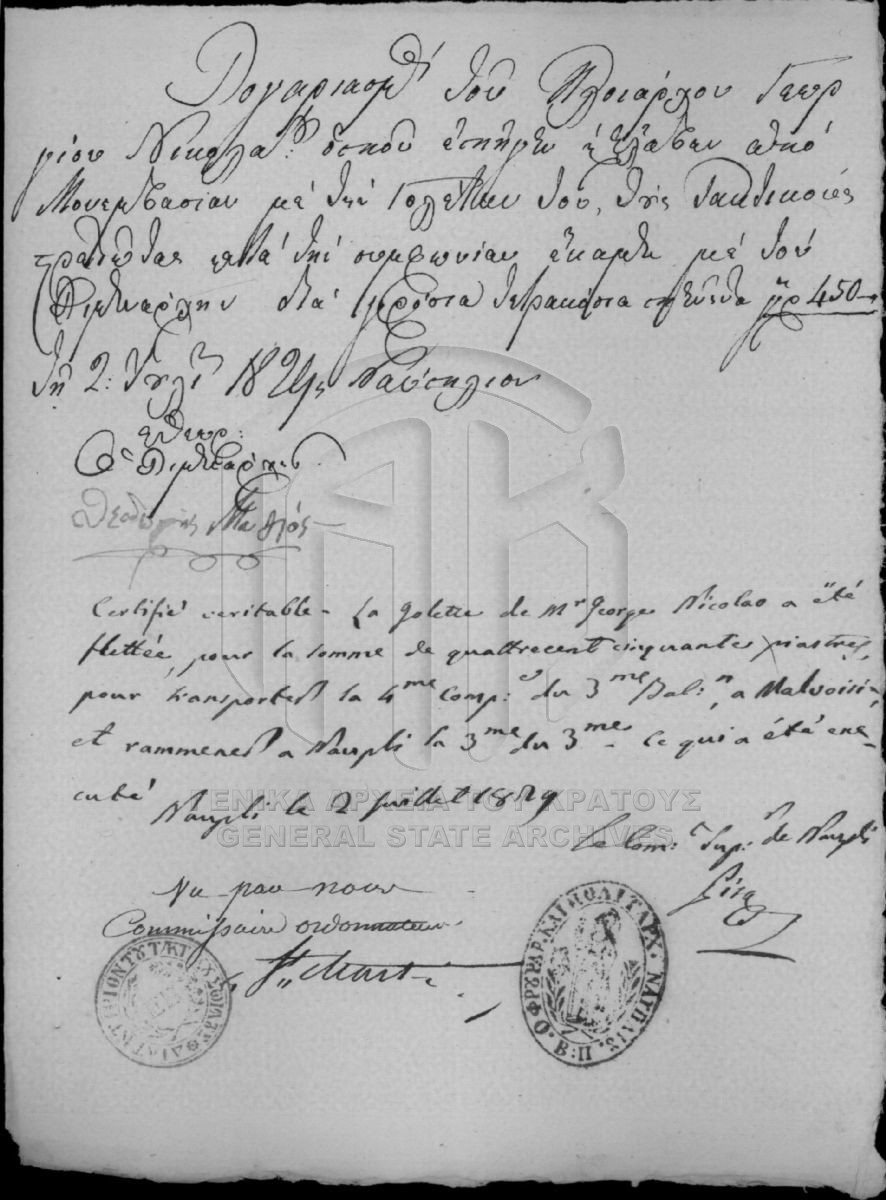 Λογαριασμὸς τοῦ Πλοιάρχου Γεωρ
γίου Νικολά: ὁποῦ ἐπῆγεν ἀπὸ
Μονεμβασίαν μὲ τὴν γολέταν του, τῆς Τακτικοὺς
στρατιώτας κατὰ τὴν συμφωνίαν ἔκαμε μὲ τὸν
Λιμενάρχην διὰ γρόσια τετρακόσια πενῆντα γρ 450
τῇ 2: Ἰουλί 1829 Ναύπλιον
ὁ Λιμενάρχης
Certifié veritable - La golette de Mr George Nicolao a été
flettée, pour la somme de quattrecent cinquantes piastres,
pour transporter la 4me Comp: du 3me Bal:n a Malvoisi
et rammener a Naupli la 3me du 3me - Ce qui a été exe-
cuté
Naupli le 2 juillet 1829
Le Com: Sup:r de Naupli
Vu par nous
Commissaire ordonnateur
ΓΕΝΙΚΑ ΑΡΧΕΙΑ ΤΟΥ ΚΡΑΤΟΥΣ
GENERAL STATE ARCHIVES
Ο ΦΡȢΡΑΡ. ΚΑΙ ΠΟΛΙΤΑΡΧ. ΝΑΥΠΛΙȢ. Β:Π.